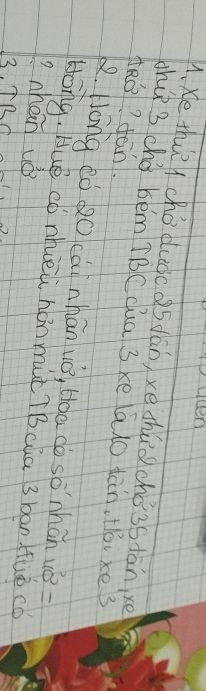 1. Xe thứ 1 chở được 25 tấn, xe thứ 2 chở 35 tấn, xe
thứ 3 chở kém TBC của 3 xe là 10 tấn. Hỏi xe 3
chở ? tấn.
2. Hồng có 20 cái nhãn vở, Hoa có số nhãn vở =
Hồng. Huệ có nhiều hơn mức TB của 3 bạn. Huệ có
? nhãn vở
3. TBC